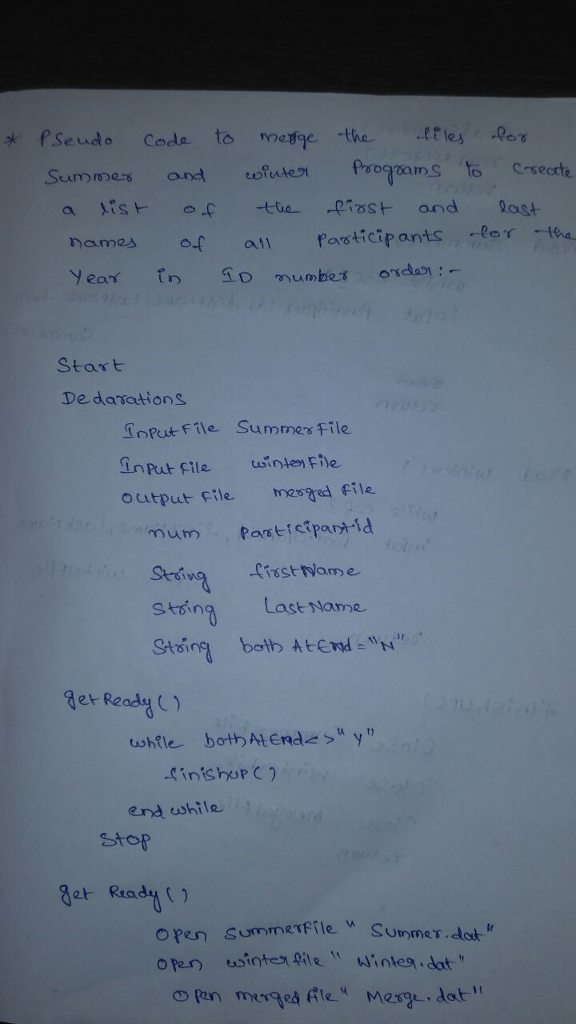 * Pseudo code to merge the files for
Summer and winter Programs to Create
a list of the first and last
names of all Participants for the
Year in ID number order:-
Start
Declarations
InputFile SummerFile
InputFile winterFile
output File merged File
num Participantid
String firstName
String LastName
String bothAtEnd = "N"
getReady()
while bothAtEnd<>"y"
finishup()
end while
Stop
get Ready()
Open summerfile "Summer.dat"
Open winterfile "Winter.dat"
Open merged file "Merge.dat"